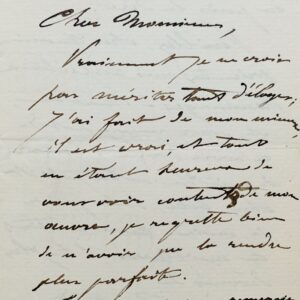 Cher Monsieur,
Vraiment je ne crois
pas mériter tant d'éloges;
j'ai fait de mon mieux,
il est vrai, et tout
en étant heureux de
vous voir content de mon
œuvre, je regrette bien
de n'avoir pu la rendre
plus parfaite.